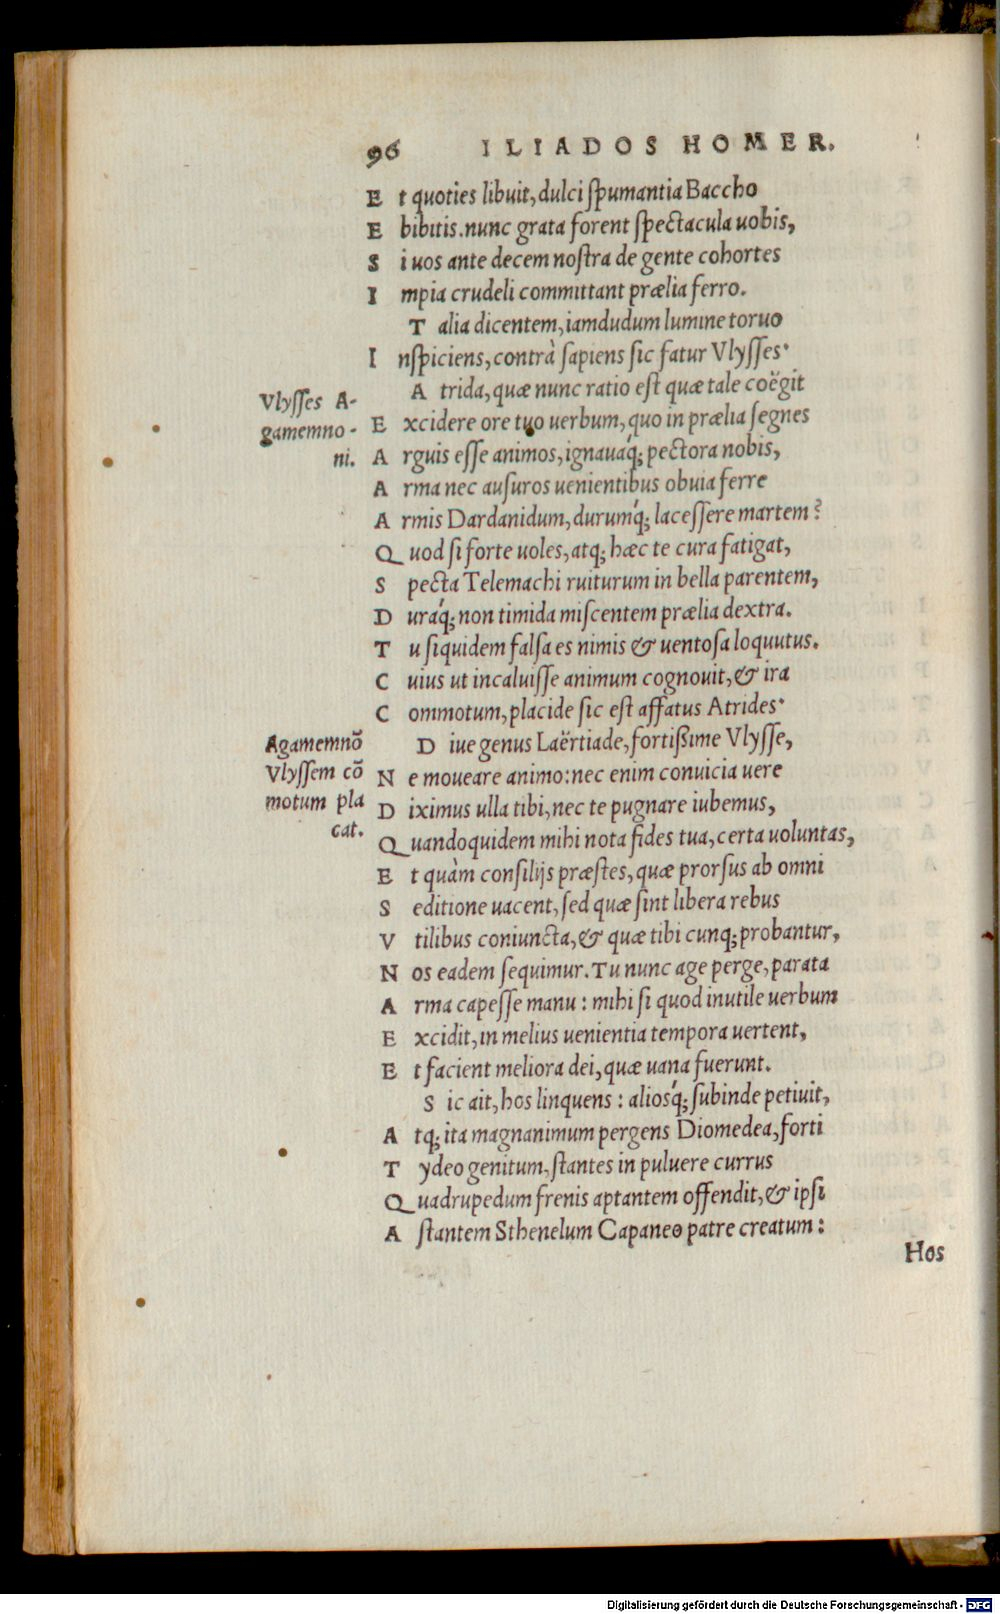 96 ILIADOS HOMER.
Et quoties libuit, dulci spumantia Baccho
Ebibitis. nunc grata forent spectacula uobis,
Si uos ante decem nostra de gente cohortes
Impia crudeli committant prælia ferro.
Talia dicentem, iamdudum lumine toruo
Inspiciens, contrà sapiens sic fatur Vlysses·
Vlysses A-
gamemno-
ni.
Atrida, quæ nunc ratio est quæ tale coëgit
Excidere ore tuo uerbum, quo in prælia segnes
Arguis esse animos, ignauaq́; pectora nobis,
Arma nec ausuros uenientibus obuia ferre
Armis Dardanidum, durumq́; lacessere martem?
Quod si forte uoles, atq; hæc te cura fatigat,
Specta Telemachi ruiturum in bella parentem,
Duraq́; non timida miscentem prælia dextra.
Tu siquidem falsa es nimis & uentosa loquutus.
Cuius ut incaluisse animum cognouit, & ira
Commotum, placide sic est affatus Atrides·
Agamemnō
Vlyssem cō
motum pla
cat.
Diue genus Laërtiade, fortißime Vlysse,
Ne moueare animo: nec enim conuicia uere
Diximus ulla tibi, nec te pugnare iubemus,
Quandoquidem mihi nota fides tua, certa uoluntas,
Et quàm consilijs præstes, quæ prorsus ab omni
Seditione uacent, sed quæ sint libera rebus
Vtilibus coniuncta, & quæ tibi cunq; probantur,
Nos eadem sequimur. Tu nunc age perge, parata
Arma capesse manu: mihi si quod inutile uerbum
Excidit, in melius uenientia tempora uertent,
Et facient meliora dei, quæ uana fuerunt.
Sic ait, hos linquens: aliosq́; subinde petiuit,
Atq; ita magnanimum pergens Diomedea, forti
Tydeo genitum, stantes in puluere currus
Quadrupedum frenis aptantem offendit, & ipsi
Astantem Sthenelum Capaneo patre creatum:
Hos
Digitalisierung gefördert durch die Deutsche Forschungsgemeinschaft - DFG